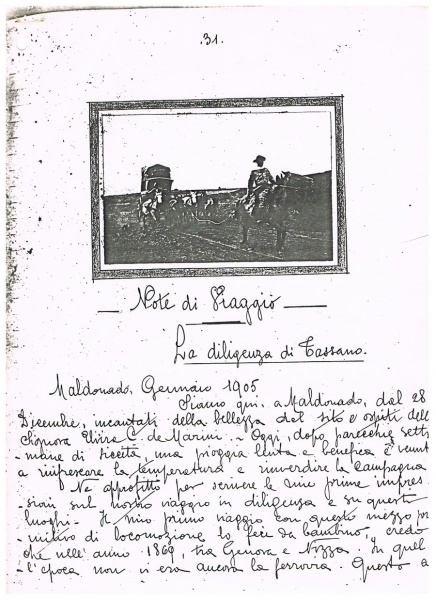 .31.
— Note di Viaggio —
La diligenza di Cassano.
Maldonado, Gennaio 1905
Siamo qui, a Maldonado, dal 28
Dicembre, incantati della bellezza del sito e ospiti della
Signora Elvira C. de Marini. - Oggi, dopo parecchie setti
-mane di siccità, una pioggia lenta e benefica è venuta
a rinfrescare la temperatura e rinverdire la campagna
Ne approfitto per scrivere le mie prime impres
-sioni sul nostro viaggio in diligenza e su questi
luoghi. - Il mio primo viaggio con questo mezzo pri
-mitivo di locomozione lo feci da bambino, credo
che nell'anno 1869, tra Genova e Nizza. In quel
-l'epoca non vi era ancora la ferrovia. Questo a